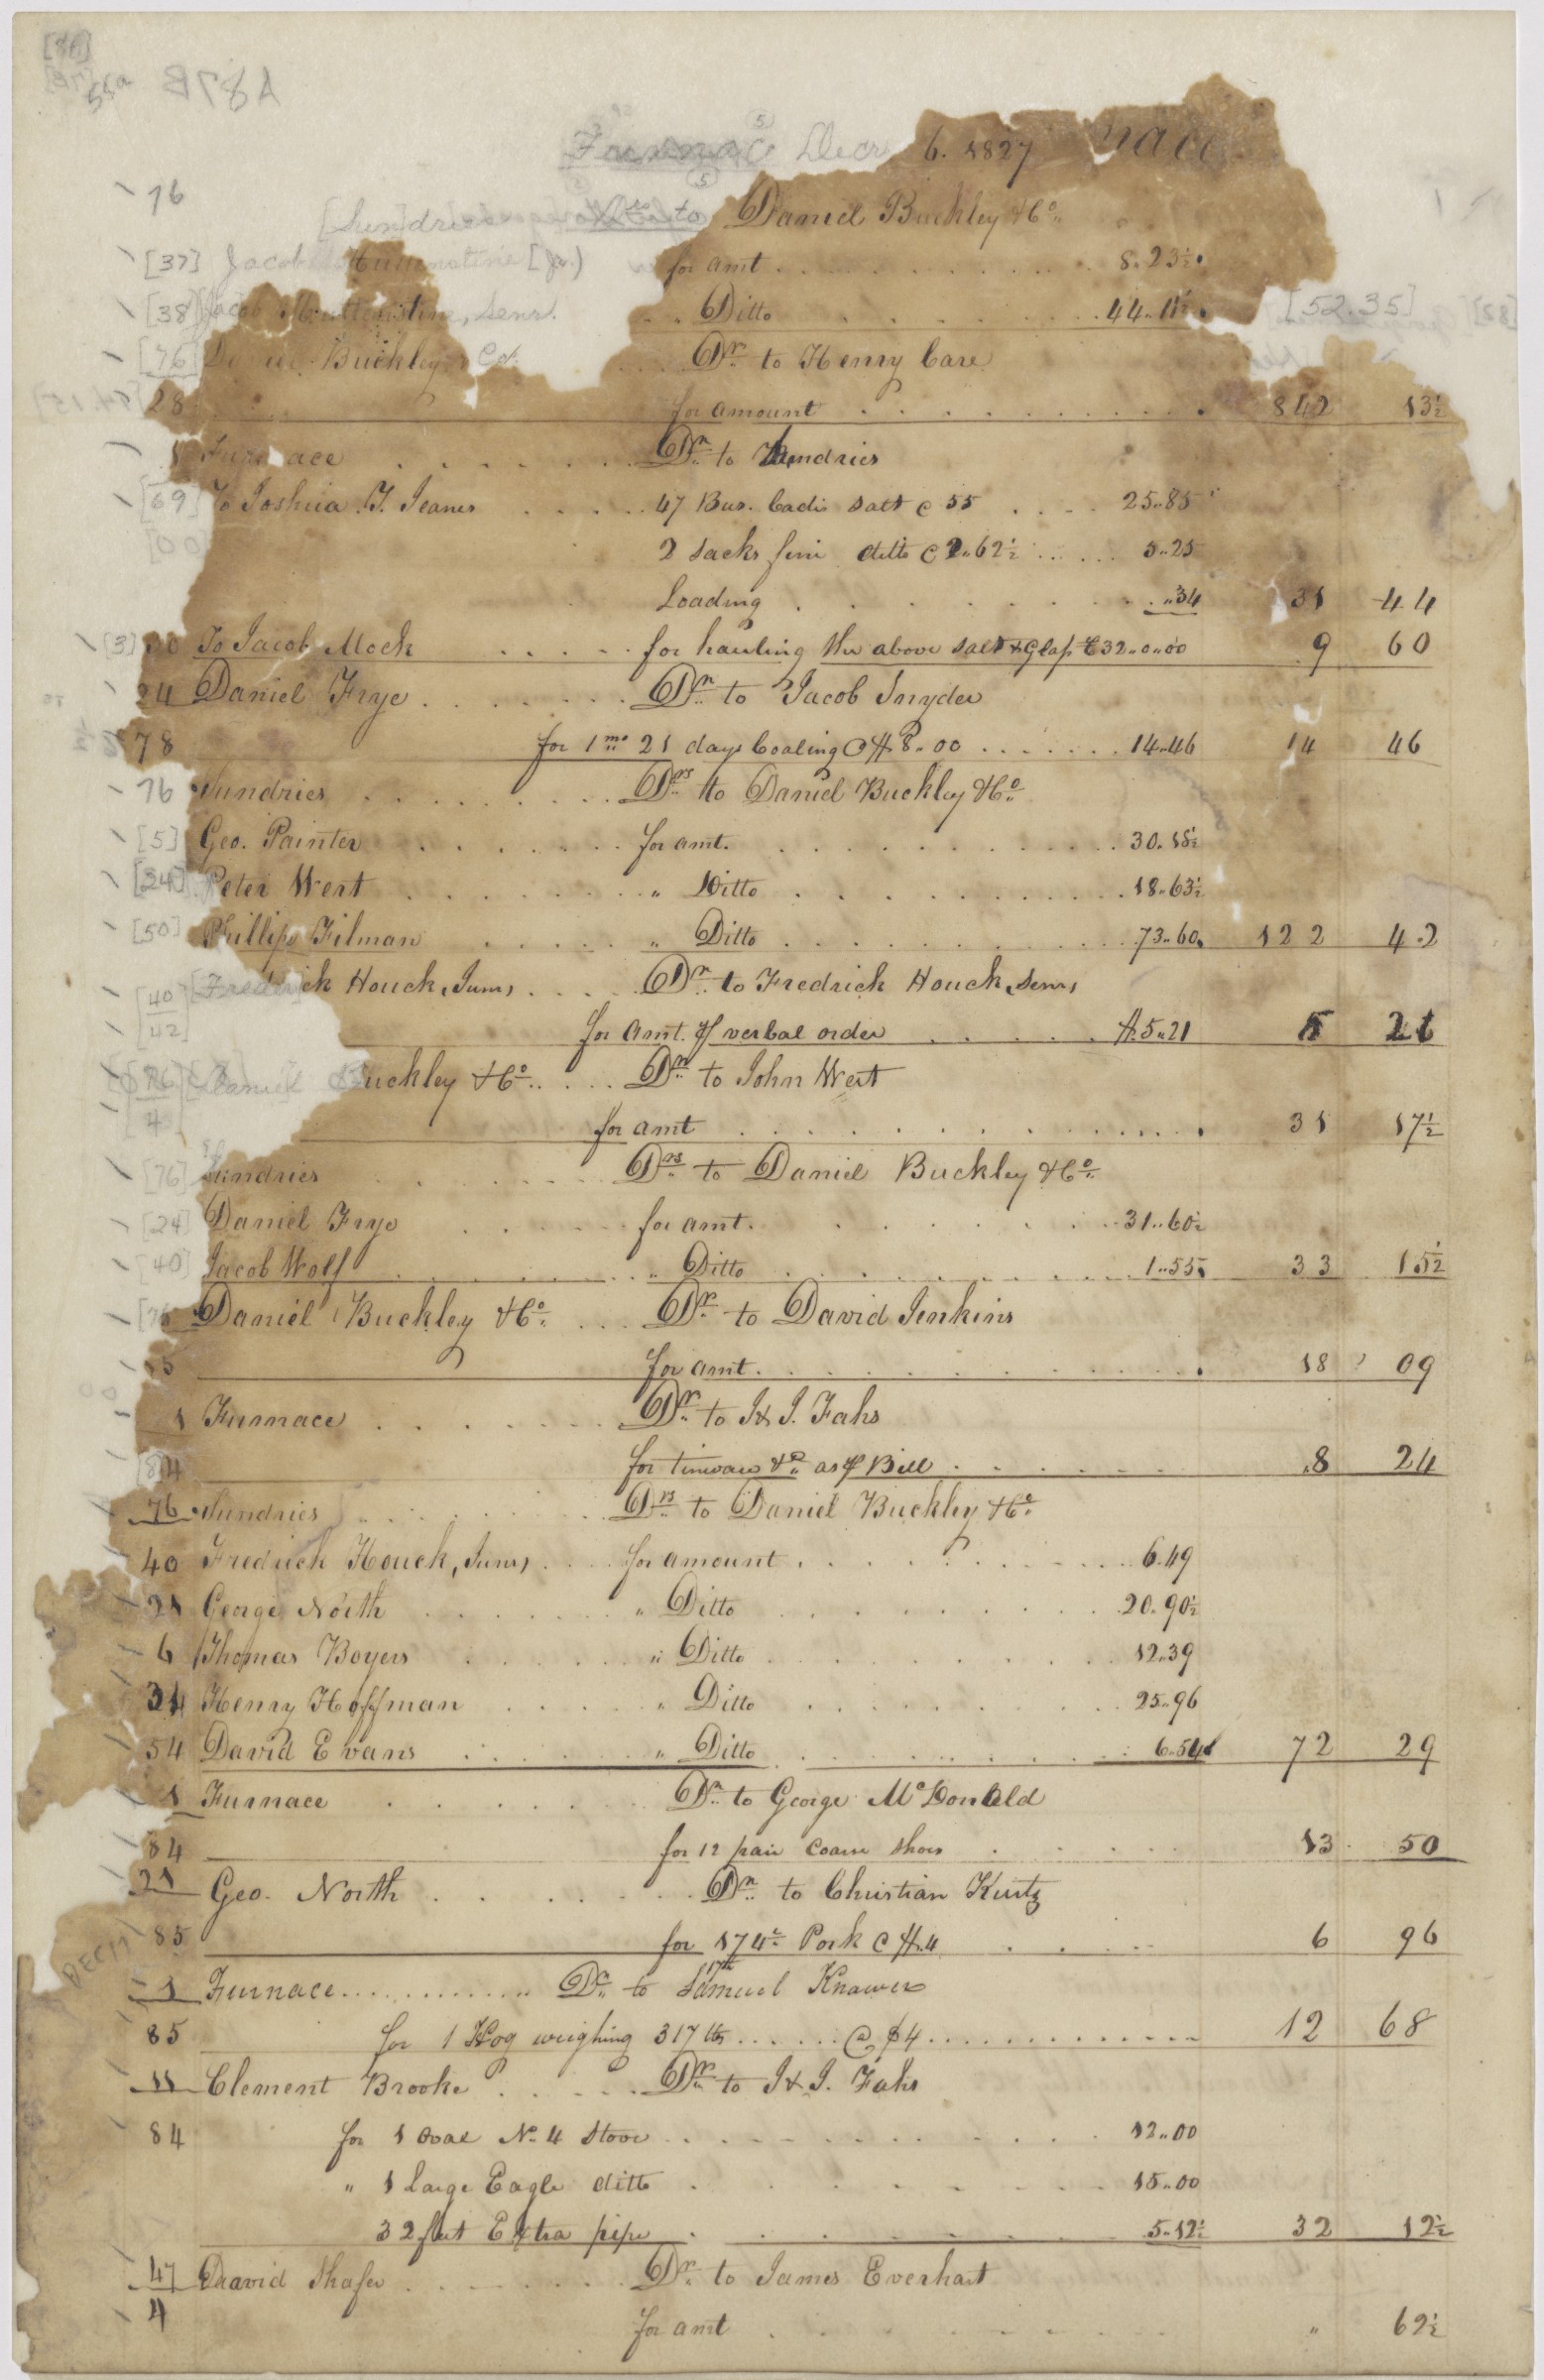 55a A87B
Furnace Decr 6. 1827
76 [Sun]dries to Daniel Buckley &Co.
[37] Jacob [Jr.) for amt 8.23½
[38] Jacob Senr. Ditto 44.11½ [52.35]
[76] Buckley Co. Dr. to Henry Care
28 for amount 842 13½
1 Furnace Dr. to Sundries
[69] To Joshua T. Jeanes 47 Bus. Cadis Salt @ 55 25..85
[00] 2 Sacks fine ditto @ 2..62½ 5..25
Loading ..34 31 44
[3]30 To Jacob Mock for hauling the above salt & Glass 32..0..00 9 60
24 Daniel Frye Dr. to Jacob Snyder
78 for 1 mo 21 days Coaling @ $8..00 14..46 14 46
76 Sundries Drs to Daniel Buckley &Co.
[5] Geo. Painter for amt. 30.18½
[24] Peter Wert " Ditto 18.63½
[50] Phillip Filman " Ditto 73..60 122 42
[40] [Freder]ick Houck, Junr, Dr. to Fredrick Houck, Senr,
[42] for amt. pr verbal order $.5..21 5 21
[76] [Daniel] Buckley &Co. Dr. to John Wert
[4] for amt 31 17½
[76] Sundries Drs to Daniel Buckley &Co.
[24] Daniel Frye for amt. 31..60½
[40] Jacob Wolf " Ditto 1..55 33 15½
[76] Daniel Buckley &Co. Dr. to David Jenkins
15 for amt. 18 09
1 Furnace Dr. to I & J. Fahs
[8]4 for tinware &c. as pr Bill 8 24
76 Sundries Drs to Daniel Buckley &Co.
40 Fredrick Houck, Junr, for amount 6.49
21 George North " Ditto 20.90½
6 Thomas Boyers " Ditto 12..39
34 Henry Hoffman " Ditto 25..96
54 David Evans " Ditto 6..54 72 29
1 Furnace Dr. to George McDonald
84 for 12 pair Coarse Shoes 13 50
21 Geo. North Dr. to Christian Kurtz
85 for 174 lb Pork @ $.4 6 96
DECM 17th
1 Furnace Dr. to Samuel Knauer
85 for 1 Hog weighing 317 lbs @ $4 12 68
11 Clement Brooke Dr. to I & J. Fahs
84 for 1 Oval No. 4 Stove 12..00
" 1 Large Eagle ditto 15..00
32 feet Extra pipe 5..12½ 32 12½
47 David Shafer Dr. to James Everhart
4 for amt " 62½